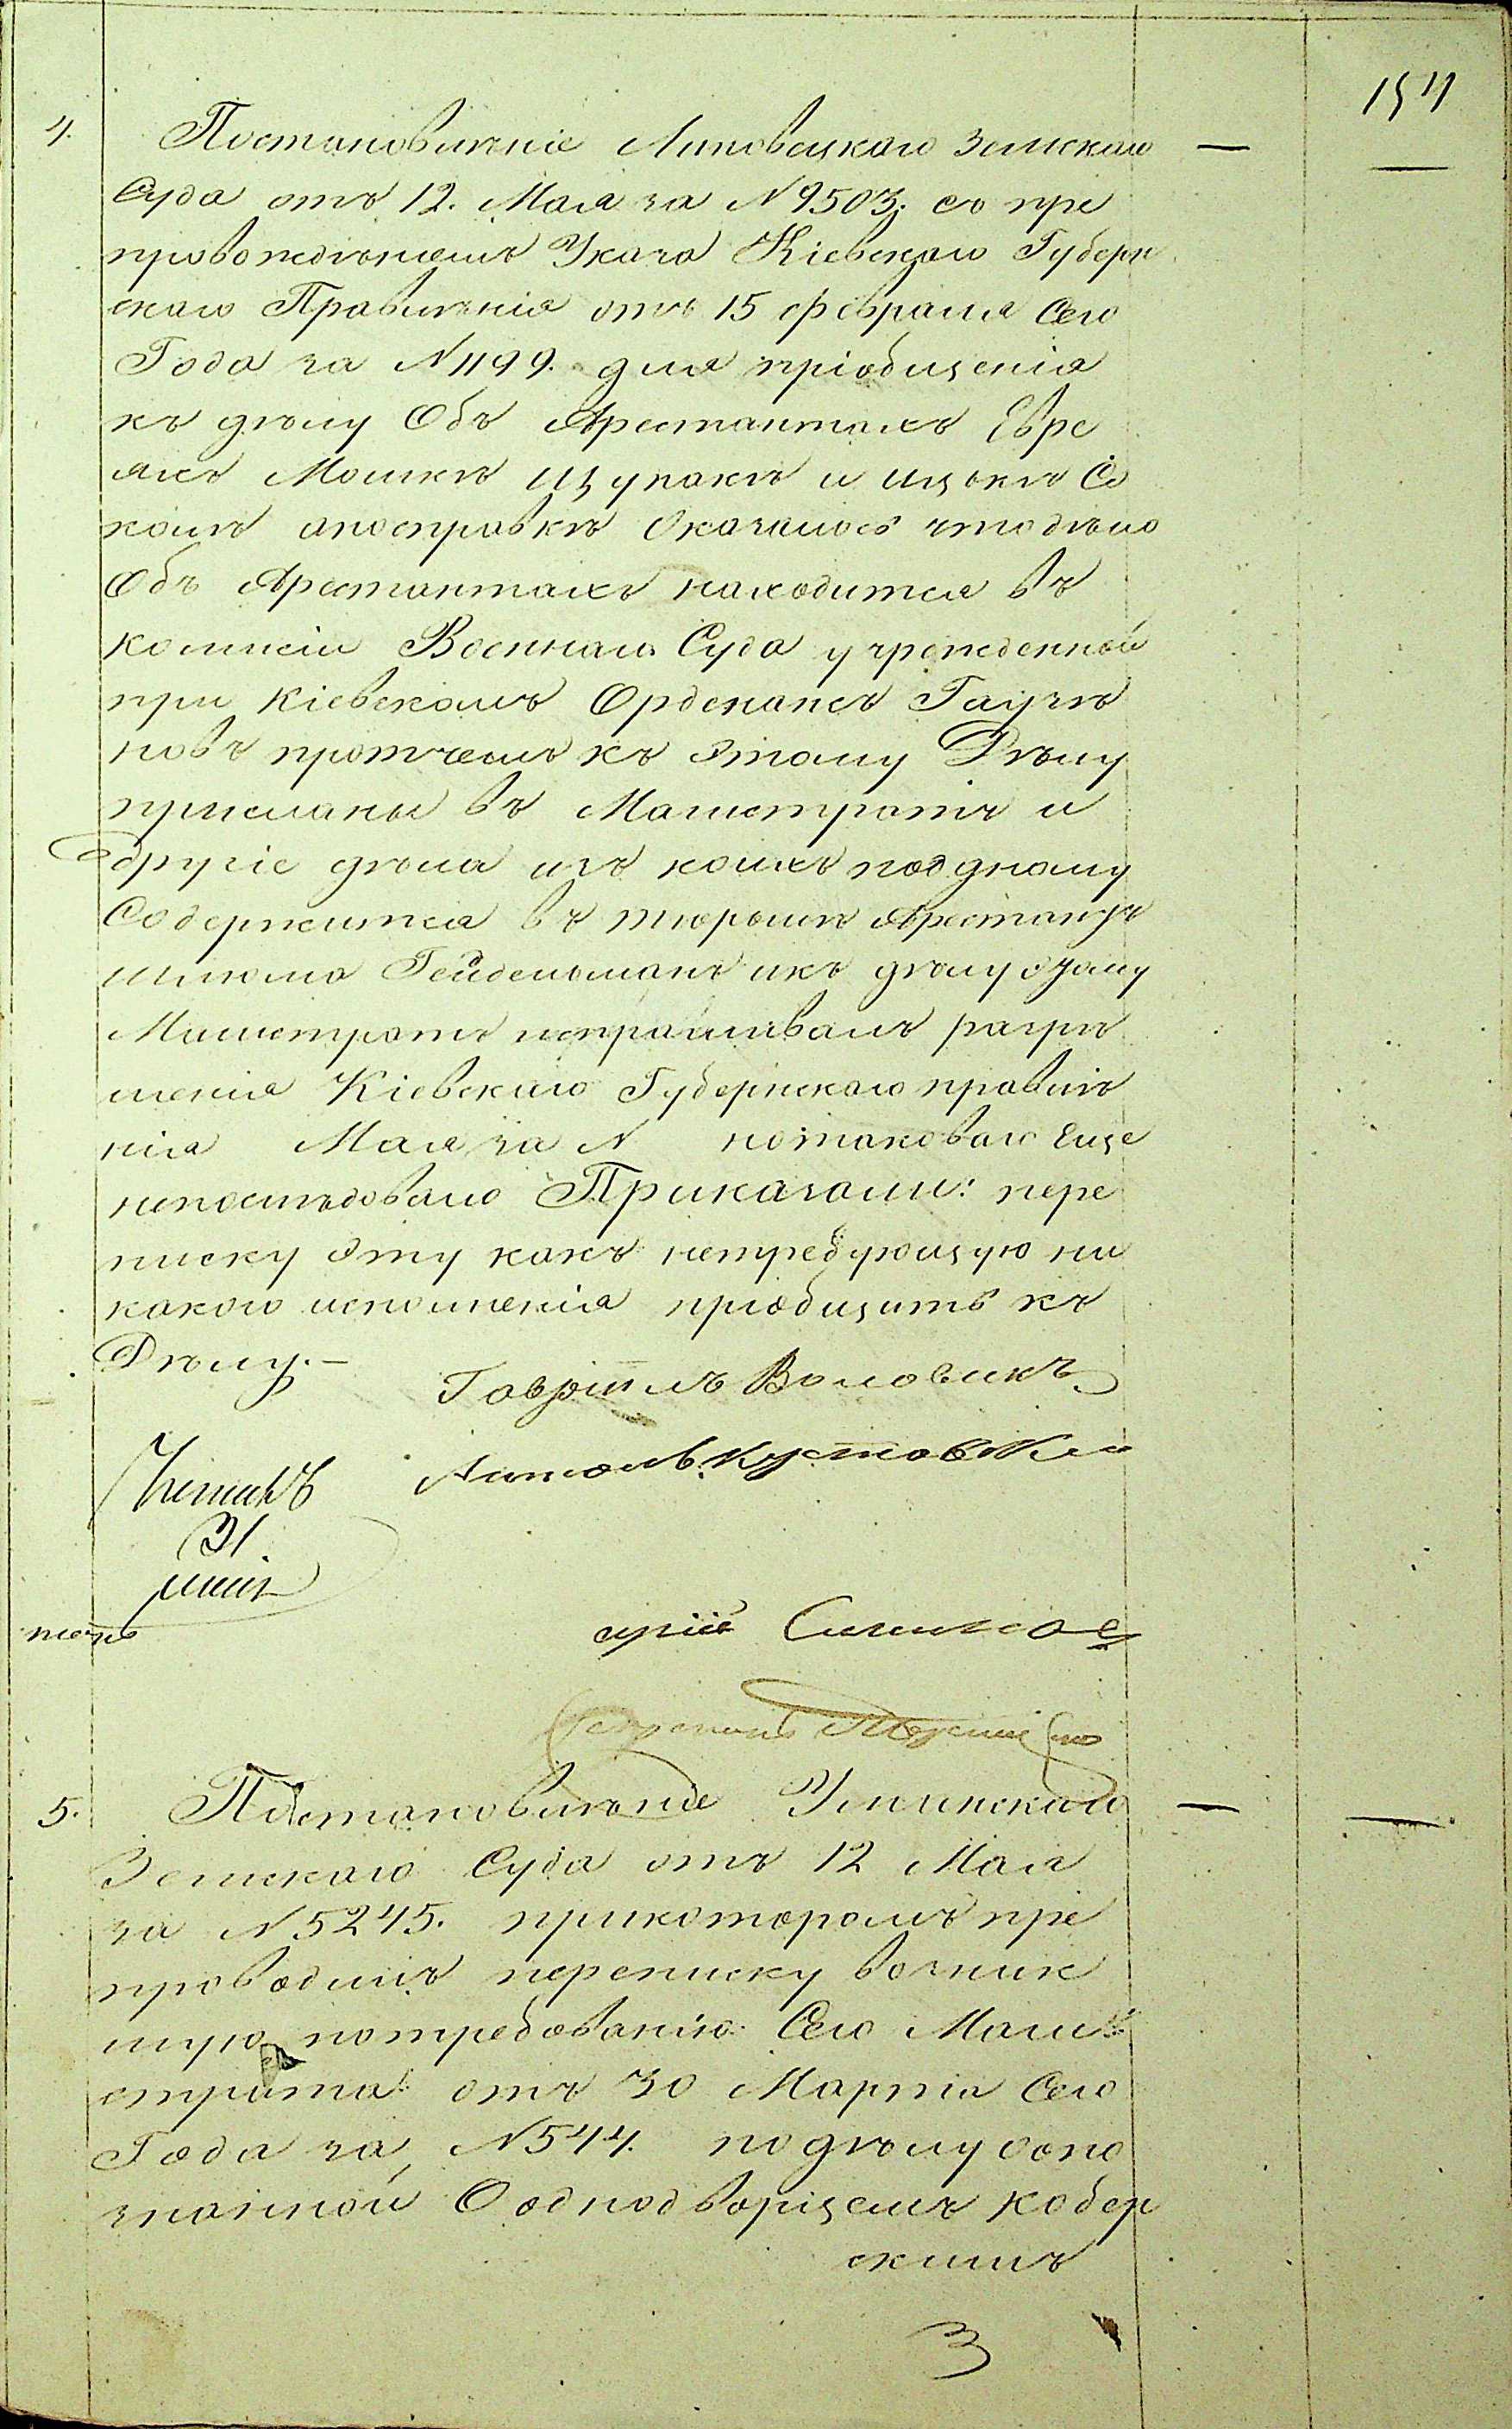 154
4. Постановленіе Липовецкаго Земскаго
Суда отъ 12. Мая за N 9503; со пре
провожденіемъ Указа Кіевскаго Губерн
скаго Правленія отъ 15 февраля Сего
Года за N 1199. для пріобщенія
къ дѣлу Объ Арестантахъ Евре
яхъ Мошкѣ Цупакѣ и Ицькѣ Со
комъ апосправкѣ Оказалось чтодѣло
Объ Арестантахъ находится въ
комисіи Военнаго Суда учрежденной
при Кіевскомъ Орденансъ Гаузѣ
новъ протчемъ къ этому Дѣлу
присланы въ Магистратъ и
другіе дѣла изъ коихъ поодному
Содержится въ тюрьмѣ Арестантъ
Шлиома Гейдельманъ икъ дѣлу одному
Магистратъ испрашивалъ разрѣ
шенія Кіевскаго Губернскаго правле
нія Мая за N нотаковаго Еще
непоследовало Приказали: пере
писку эту какъ нетребующую ни
какого исполненія пріобщить къ
Дѣлу. —
Гавріилъ Воловикъ
31
5. Постановленіе Уманскаго
Земскаго Суда отъ 12 Мая
за N 5245. прикоторомъ пре
проводилъ переписку возник
шую потребованію Сего Маги
страта отъ 30 Марта Сего
Года за N 544. подѣлу сопо
знанной Ооднодворцемъ Кобер
скимъ
З